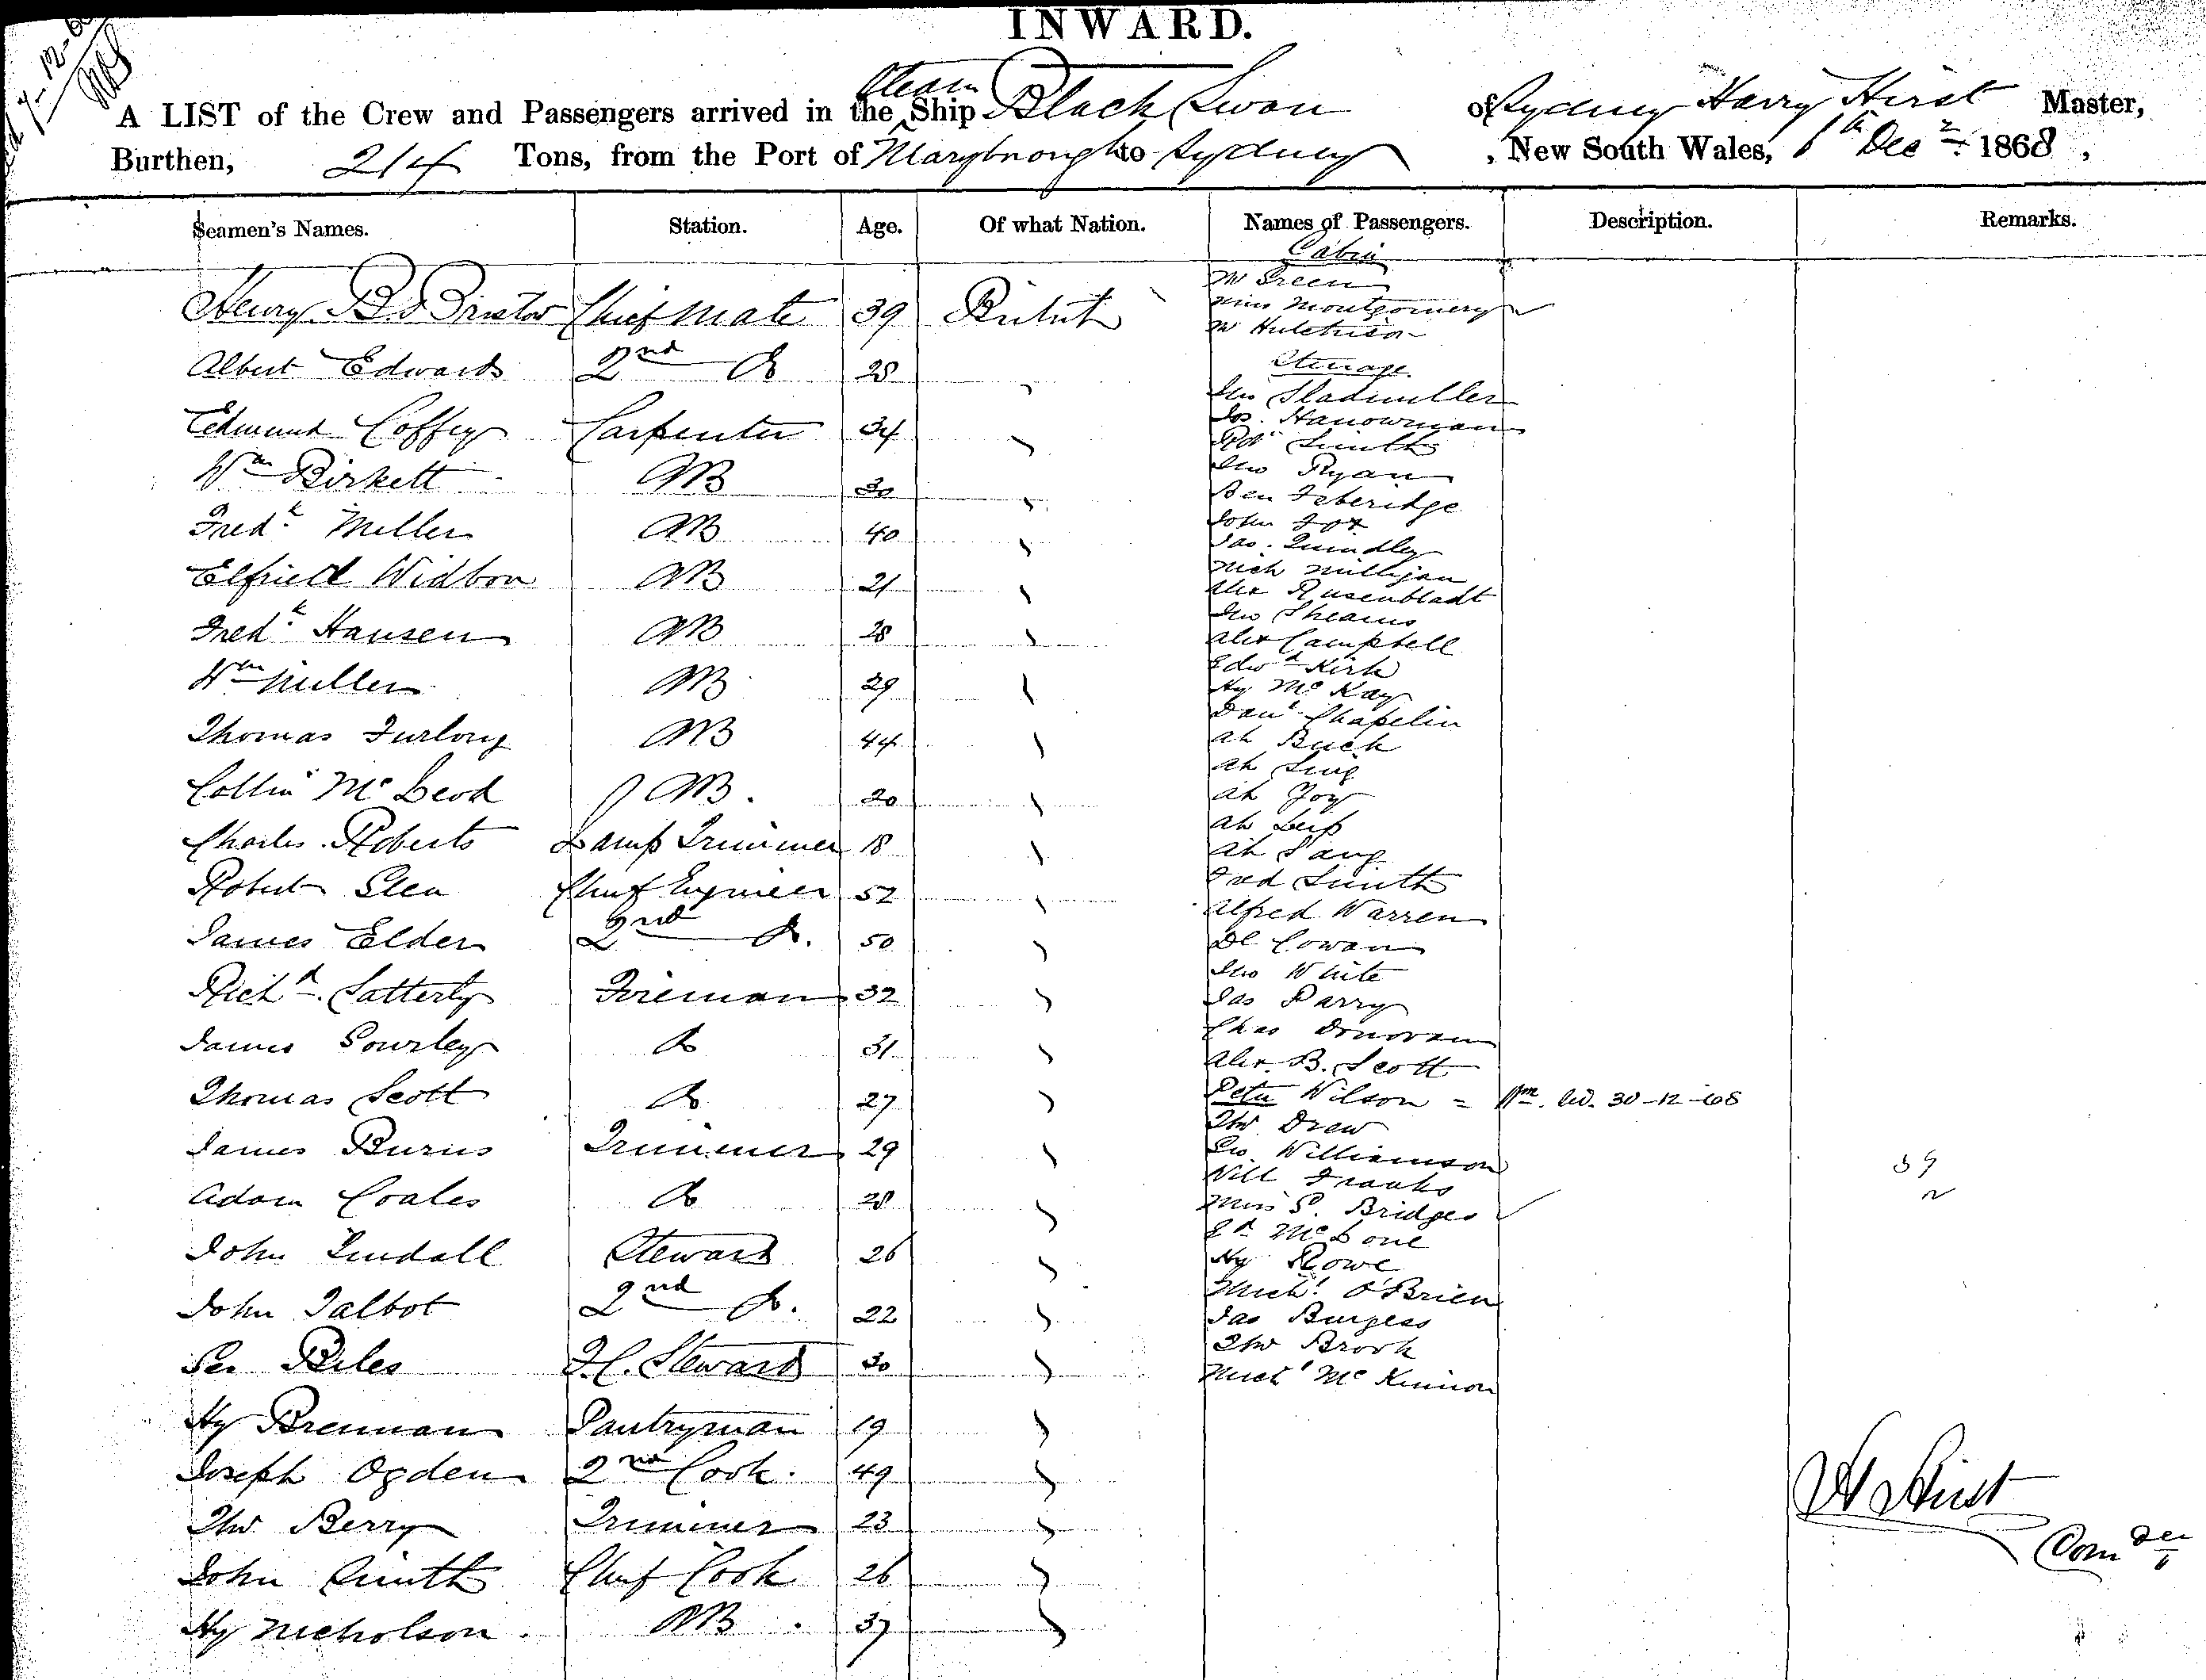 INWARD.
A LIST of the Crew and Passengers arrived in the Steam Ship Black Swan of Sydney Harry Hirst Master,
Burthen, 214 Tons, from the Port of Maryborough to Sydney, New South Wales, 6th Decr 1868,
Seamen's Names. Station. Age. Of what Nation. Names of Passengers. Description. Remarks.
Cabin
Mr Green
Henry Chief Mate 39 British Miss Montgomery
Mr Hutchison
Albert Edwards 2nd Do 28 Steerage
Jno
Edmund Coffey Carpenter 34 Jas. Hanowman
Robt Smith
Wm Birkett AB 30 Jno Ryan
Ben Feberidge
Fredk Miller AB 40 John Fox
Jas. Quindley
Elfried Widbon AB 21 Mich Milligan
Alex Rusenbladt
Fredk Hansen AB 28 Jno Shearns
Alex Campbell
Wm Miller AB 29 Edwd Kirk
Hy McKay
Danl Chapelin
Thomas Furlong AB 44 Ah Buck
Ah Sing
Collin McLeod AB. 20 Ah Joy
Ah
Charles Roberts Lamp Trimmer 18 Ah Sang
Robert Glen Chief Engineer 52 Fred Smith
Alfred Warren
James Elder 2nd Do. 50 Dl Cowan
Jno White
Richd Satterly Fireman 32 Jas Parry
Chas Donovan
James Gourley Do 31 Alex. B. Scott
Thomas Scott Do 27 Peter Wilson = 30-12-68
Thos Drew
James Burns Trimmer 29 Geo Williamson 39
Will Franks
Adam Coales Do 28 Miss S. Bridges
John Lindall Steward 26 Hy Rowe
Michl O'Brien
John Talbot 2nd Do. 22 Jas Burgess
Thos Brook
Geo Biles F.C. Steward 30 Michl McKinnon
Hy Brennan Pantryman 19
Joseph Ogden 2nd Cook. 49
Thos Berry Trimmer 23
H Hirst
Comder
John Smith Chief Cook 26
Hy Nicholson. AB. 37